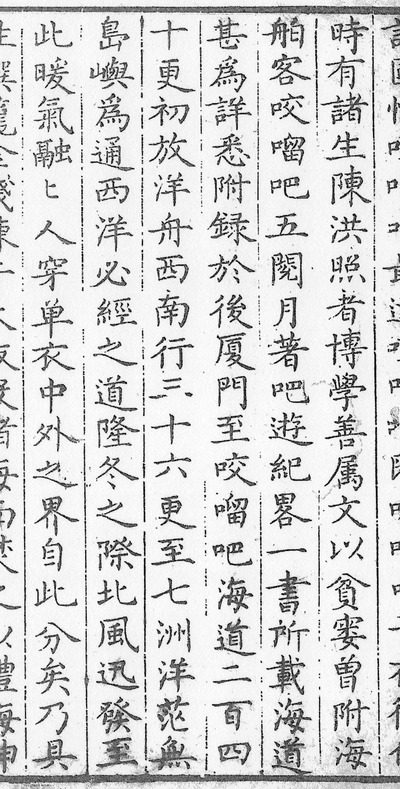 時有諸生陳洪照者博學善属文以貧窶曽附海
舶客咬𠺕吧五閱月著吧遊紀畧一書所載海道
甚為詳悉附録於後厦門至咬𠺕吧海道二百四
十更初放洋舟西南行三十六更至七洲洋茫無
島嶼為通西洋必經之道隆冬之際北風迅發至
此暖氣融〻人穿单衣中外之界自此分矣乃具